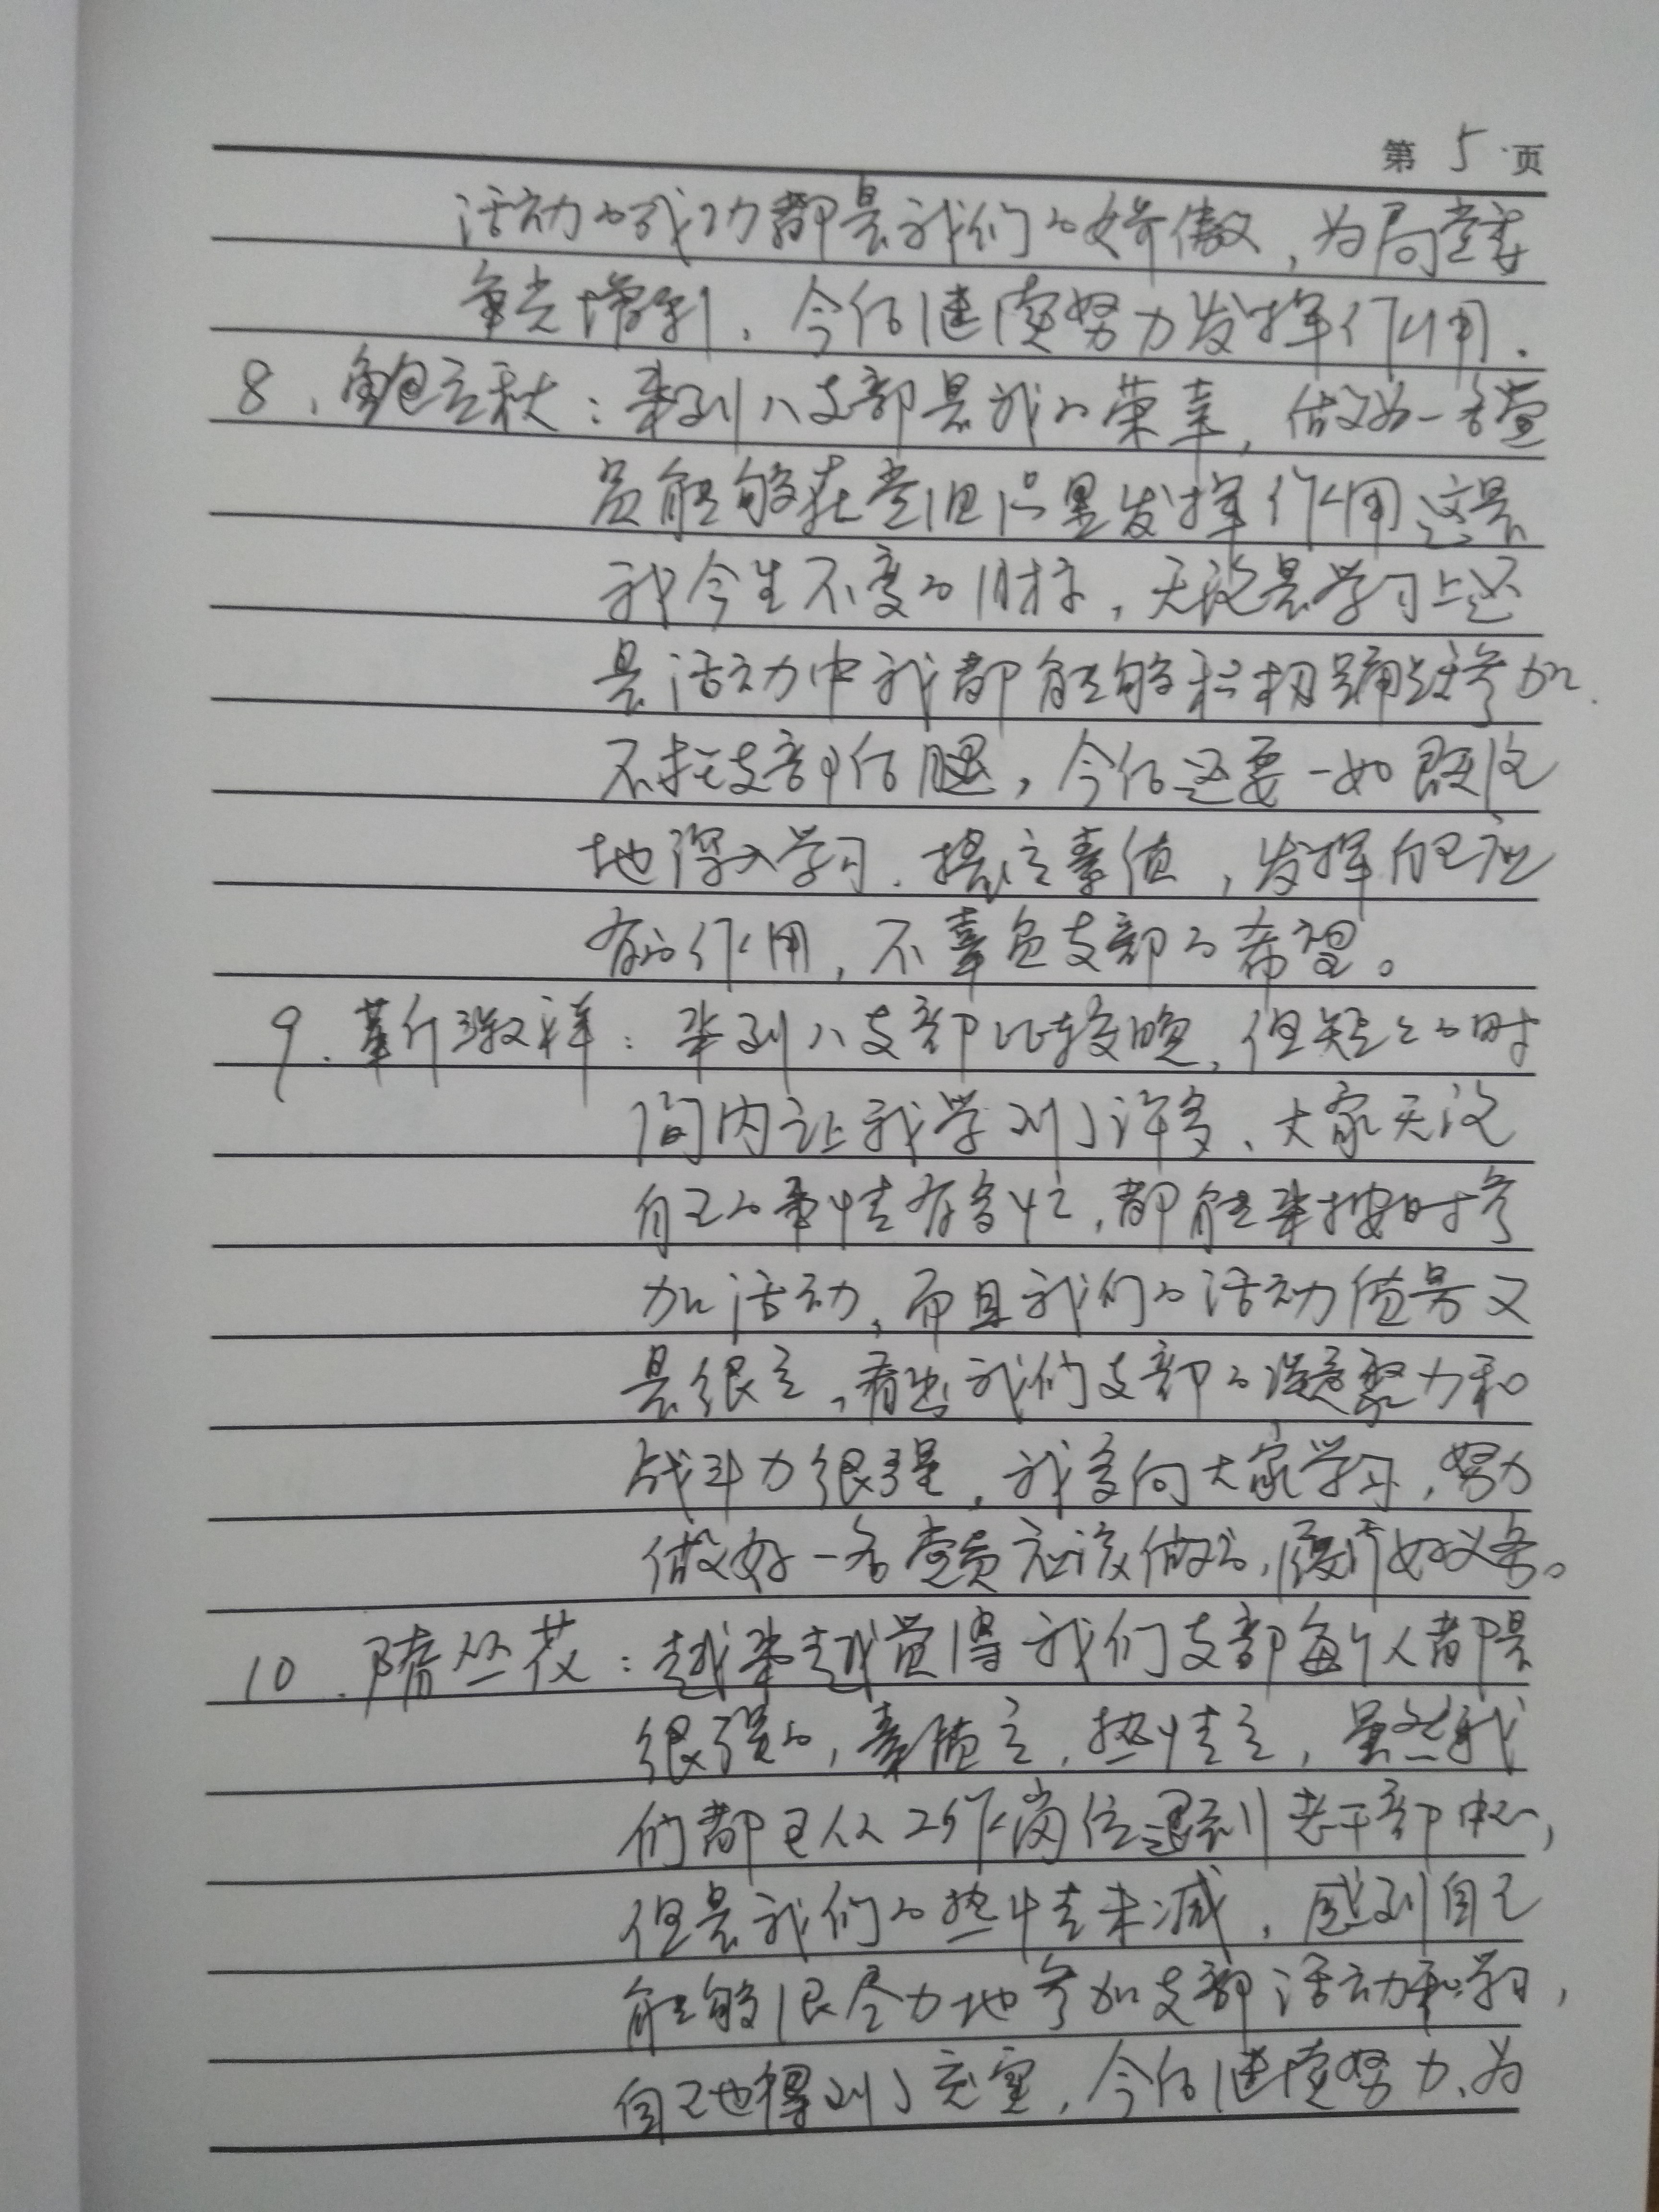 第 5 页
活动的成功都是我们的娇傲，为局党委
争光增彩，今后继续努力发挥作用.
8、鲍立秋：来到八支部是我的荣幸，做为一名党
员能够在党组织里发挥作用这是
我今生不变的，无论是学习上还
是活动中我都能够积极踊跃参加.
不拖支部后腿，今后还要一如既往
地深入学习.提高素质，发挥自己应
有的作用，不辜负支部的希望。
9.祥：来到八支部比较晚，但短短的时
间内让我学到了许多、大家无论
自己的事情有多忙，都能来按时参
加活动，而且我们的活动质量又
是很高，看出我们支部的凝聚力和
战斗力很强，我要向大家学习，努力
做好一名党员应该做的，履行好义务。
10.丛花：越来越觉得我们支部每个人都是
很强的，素质高，热情高，虽然我
们都已从工作岗位退到老干部中心，
但是我们的热情未减，感到自己
能够很尽力地参加支部活动和学习，
自己也得到了充实，今后继续努力、为